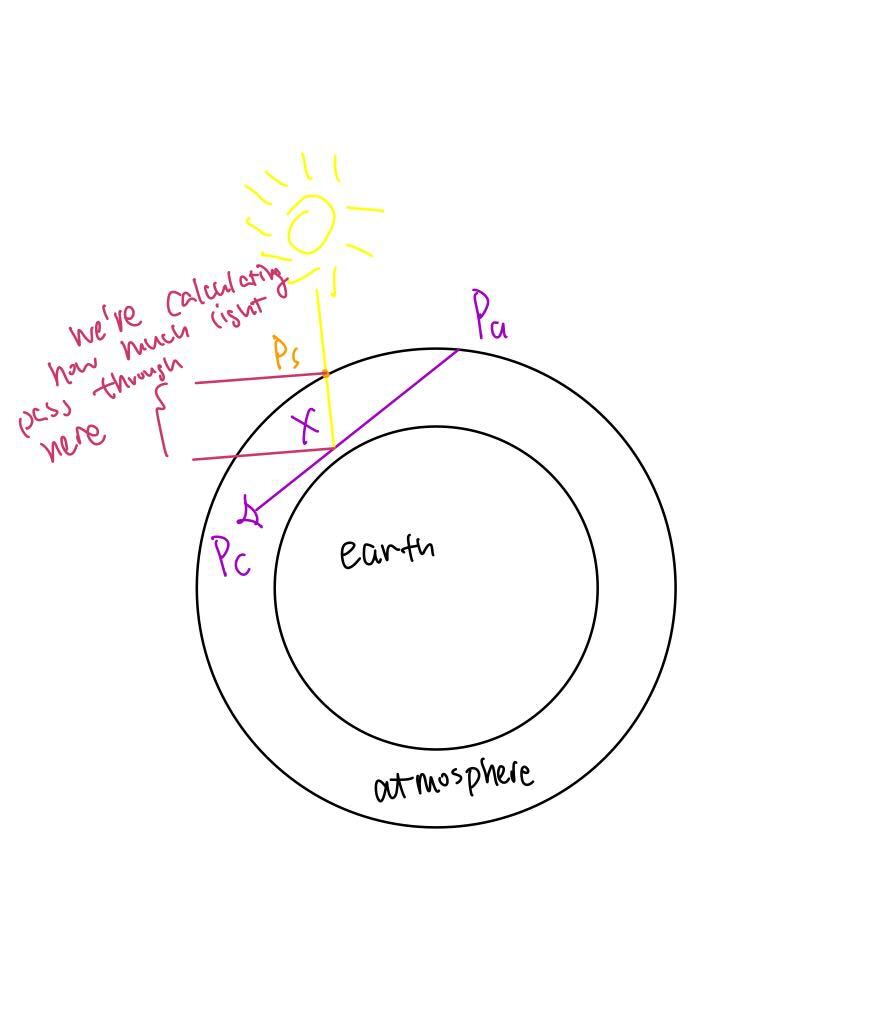 we're calculating
how much light
pass through
here
Ps
Pa
X
Pc
earth
atmosphere